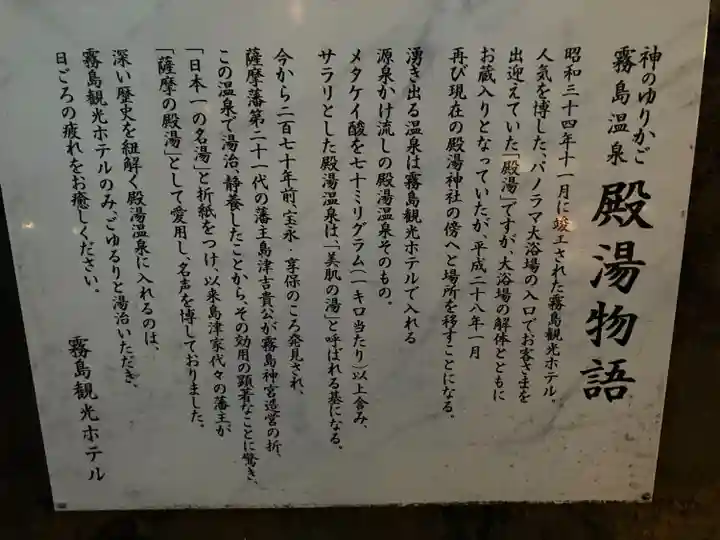 神のゆりかご
霧島温泉
殿湯物語
昭和三十四年十一月に竣工された霧島観光ホテル。
人気を博した、パノラマ大浴場の入口でお客さまを
出迎えていた「殿湯」ですが、大浴場の解体とともに
お蔵入りとなっていたが、平成二十八年一月
再び現在の殿湯神社の傍へと場所を移すことになる。
湧き出る温泉は霧島観光ホテルで入れる
源泉かけ流しの殿湯温泉そのもの。
メタケイ酸を七十ミリグラム(一キロ当たり)以上含み、
サラリとした殿湯温泉は、「美肌の湯」と呼ばれる基になる。
今から二百七十年前、宝永・享保のころ発見され、
薩摩藩第二十一代の藩主島津吉貴公が霧島神宮造営の折、
この温泉で湯治、静養したことから、その効用の顕著なことに驚き、
「日本一の名湯」と折紙をつけ、以来島津家代々の藩主が
「薩摩の殿湯」として愛用し、名声を博しておりました。
深い歴史を紐解く殿湯温泉に入れるのは、
霧島観光ホテルのみ。ごゆるりと湯治いただき、
日ごろの疲れをお癒しください。
霧島観光ホテル